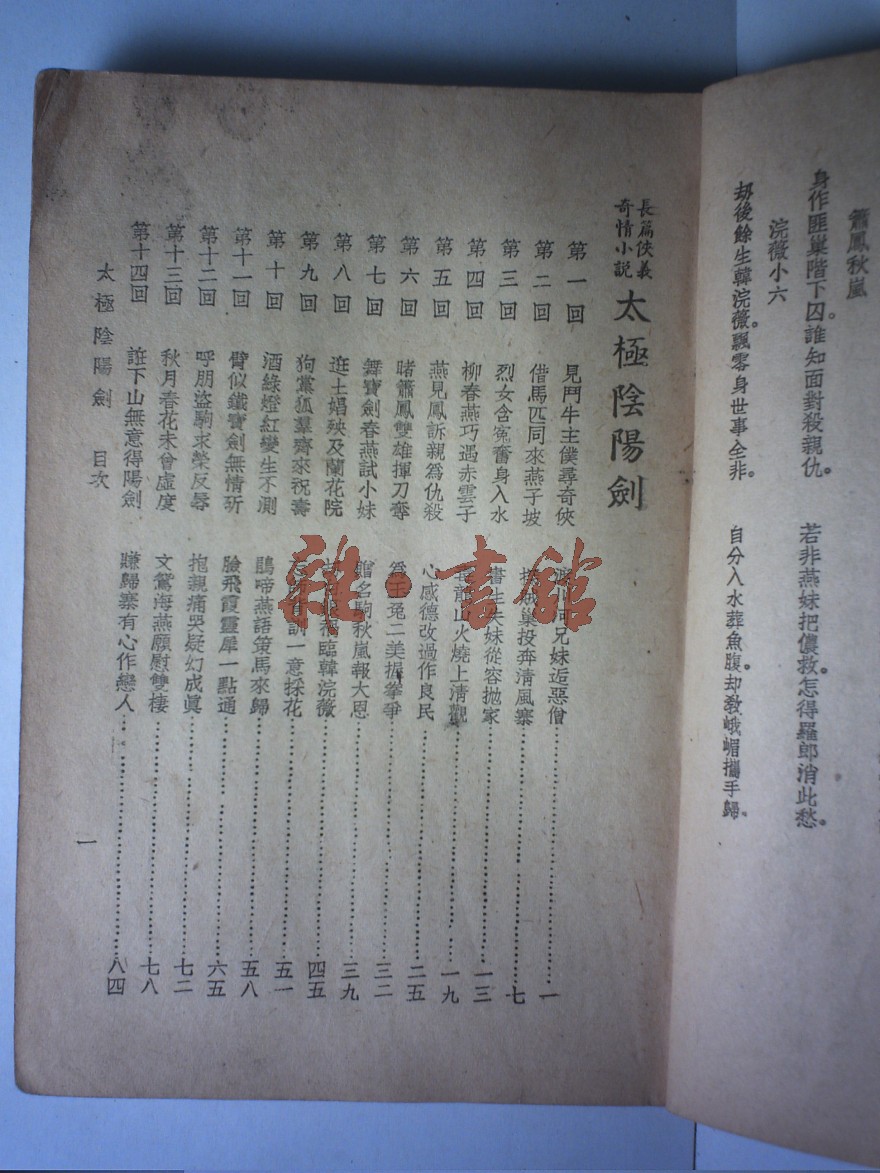 簫鳳秋嵐
身作匪巢階下囚。誰知面對殺親仇。
若非燕妹把儂救。怎得羅郎消此愁。
浣薇小六
刼後餘生韓浣薇。飄零身世事全非。
自分入水葬魚腹。却教峨嵋攜手歸。
長篇俠義
奇情小説
太極陰陽劍
第一回 見鬥牛主僕尋奇俠 兄妹逅惡僧 一
第二回 借馬匹同來燕子坡 巢投奔清風寨 七
第三回 烈女含冤奮身入水 書生失妹從容抛家 一三
第四回 柳春燕巧遇赤雲子 山火燒上清觀 一九
第五回 燕見鳳訴親爲仇殺 心感德改過作良民 二五
第六回 睹簫鳳雙雄揮刀奪 爲玉兔二美握拳爭 三二
第七回 舞寶劍春燕試小妹 贈名駒秋嵐報大恩 三九
第八回 逛土娼殃及蘭花院 臨韓浣薇 四五
第九回 狗黨狐羣齊來祝壽 訓一意採花 五一
第十回 酒綠燈紅變生不測 鵑啼燕語策馬來歸 五八
第十一回 臂似鐵寶劍無情斫 臉飛霞靈犀一點通 六五
第十二回 呼朋盜駒求榮反辱 抱親痛哭疑幻成眞 七二
第十三回 秋月春花未曾虛度 文鴛海燕願慰雙棲 七八
第十四回 誑下山無意得陽劍 賺歸寨有心作戀人 八四
太極陰陽劍 目次
一
雜·書館